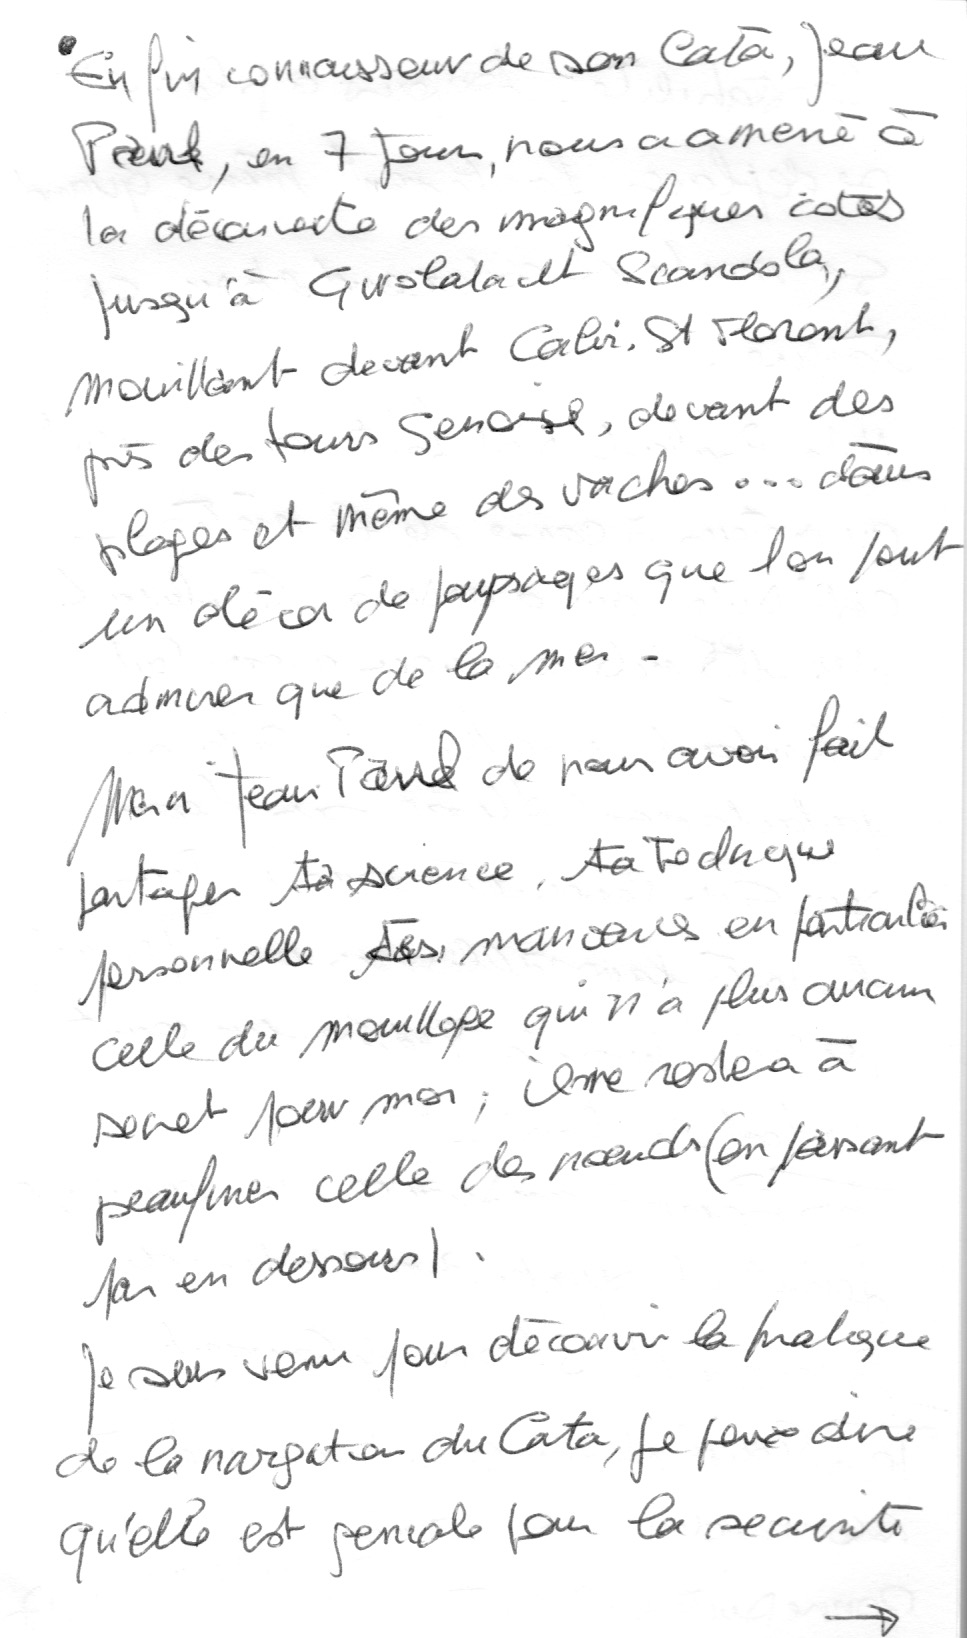 En fin connaisseur de son Cata, Jean
Pierre, en 7 jours, nous a amené à
la découverte des magnifiques cotes
jusqu'à Girolata et Scandola,
mouillant devant Calvi, St Florent,
près des tours Génoise, devant des
plages et même des vaches... dans
un décor de paysages que l'on peut
admirer que de la mer -
Merci Jean Pierre de nous avoir fait
partager ta science, ta technique
personnelle des manoeuvres en particulier
celle du mouillage qui n'a plus aucun
secret pour moi ; il me restera à
peaufiner celle des noeuds (en passant
par en dessous) .
Je suis venu pour découvrir la pratique
de la navigation du Cata, je peux dire
qu'elle est géniale pour la sécurité
→